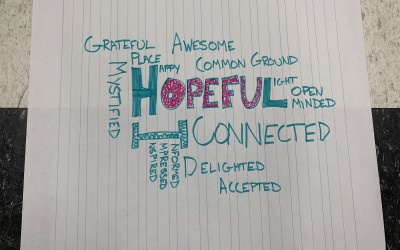 GRATEFUL AWESOME
PLACE
APPY COMMON GROUND
MYSTIFIED
HOPEFUL
IGHT OPEN
MINDED
I
CONNECTED
NFORMED
MPRESSED
NSPIRED
DELIGHTED
ACCEPTED